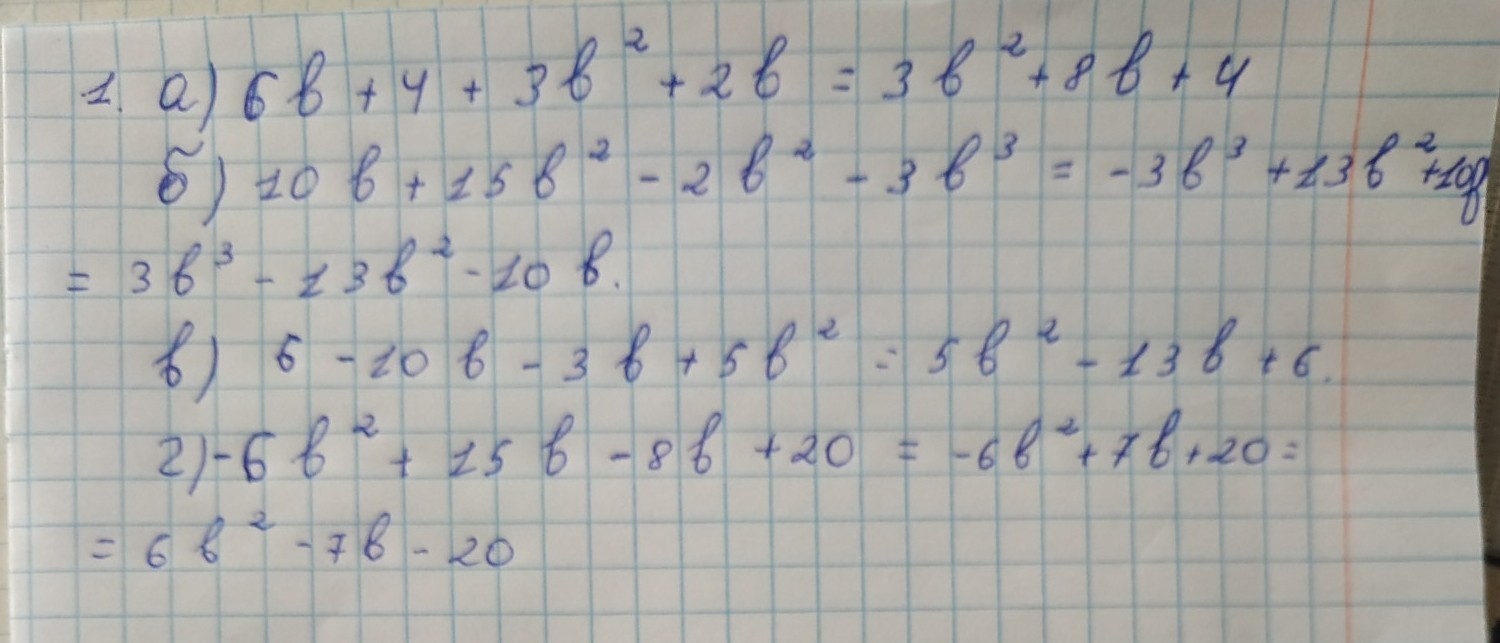 1. а) 6в + 4 + 3в² + 2в = 3в² + 8в + 4
б) 10в + 15в² - 2в² - 3в³ = -3в³ + 13в² + 10в
= 3в³ - 13в² - 10в.
в) 6 - 10в - 3в + 5в² = 5в² - 13в + 6.
г) -6в² + 15в - 8в + 20 = -6в² + 7в + 20 =
= 6в² - 7в - 20